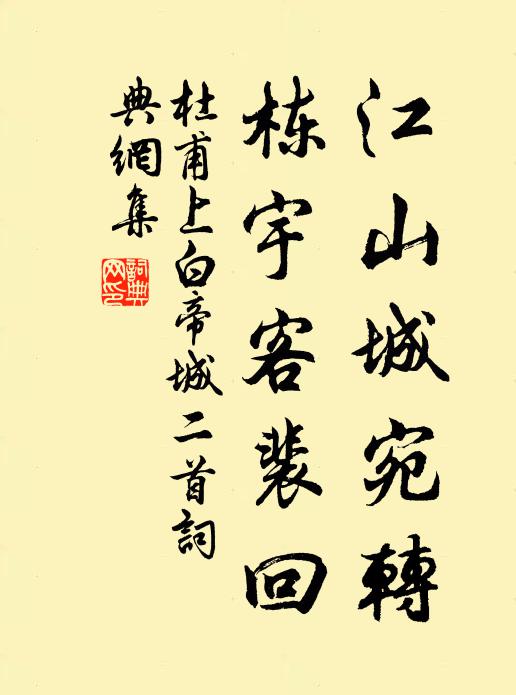 江山城宛轉
棟宇客裴回
杜甫上白帝城二首詞
典網集
詞典網印